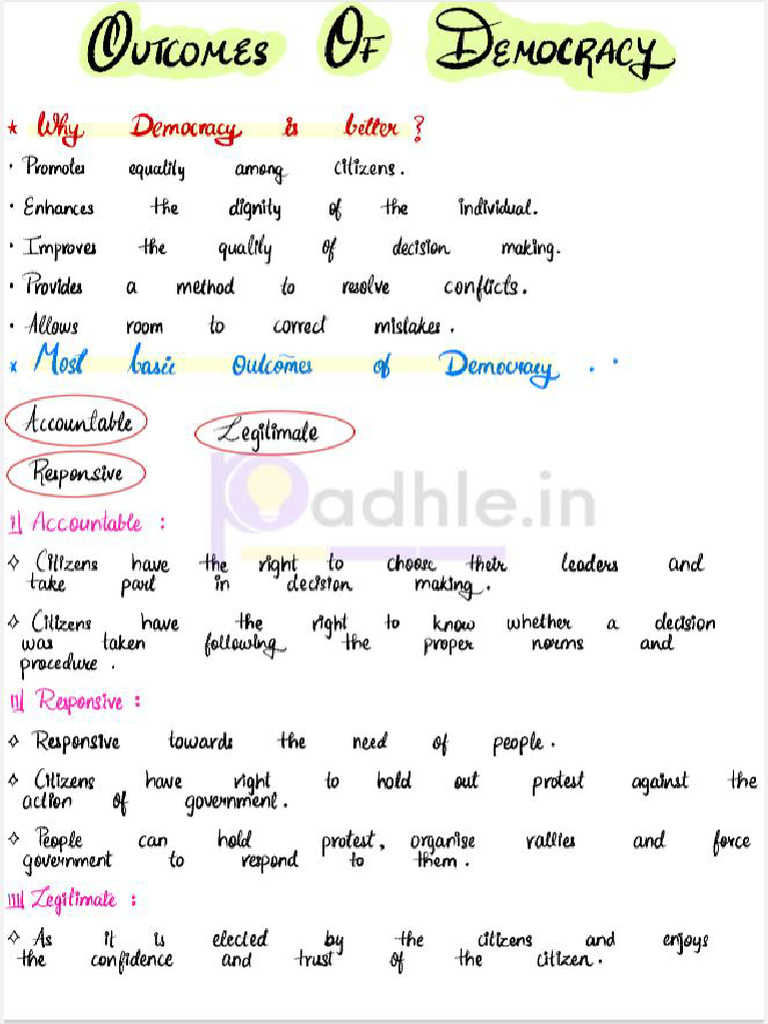 OUTCOMES OF DEMOCRACY
* Why Democracy is better ?
• Promotes equality among citizens.
• Enhances the dignity of the individual.
• Improves the quality of decision making.
• Provides a method to resolve conflicts.
• Allows room to correct mistakes.
* Most basic outcomes of Democracy . .
Accountable
Legitimate
Responsive
Padhle.in
I| Accountable :
◇ Citizens have the right to choose their leaders and
take part in decision making.
◇ Citizens have the right to know whether a decision
was taken following the proper norms and
procedure.
II| Responsive :
◇ Responsive towards the need of people.
◇ Citizens have right to hold out protest against the
action of government.
◇ People can hold protest, organise rallies and force
government to respond to them.
III| Legitimate :
◇ As it is elected by the citizens and enjoys
the confidence and trust of the citizen.